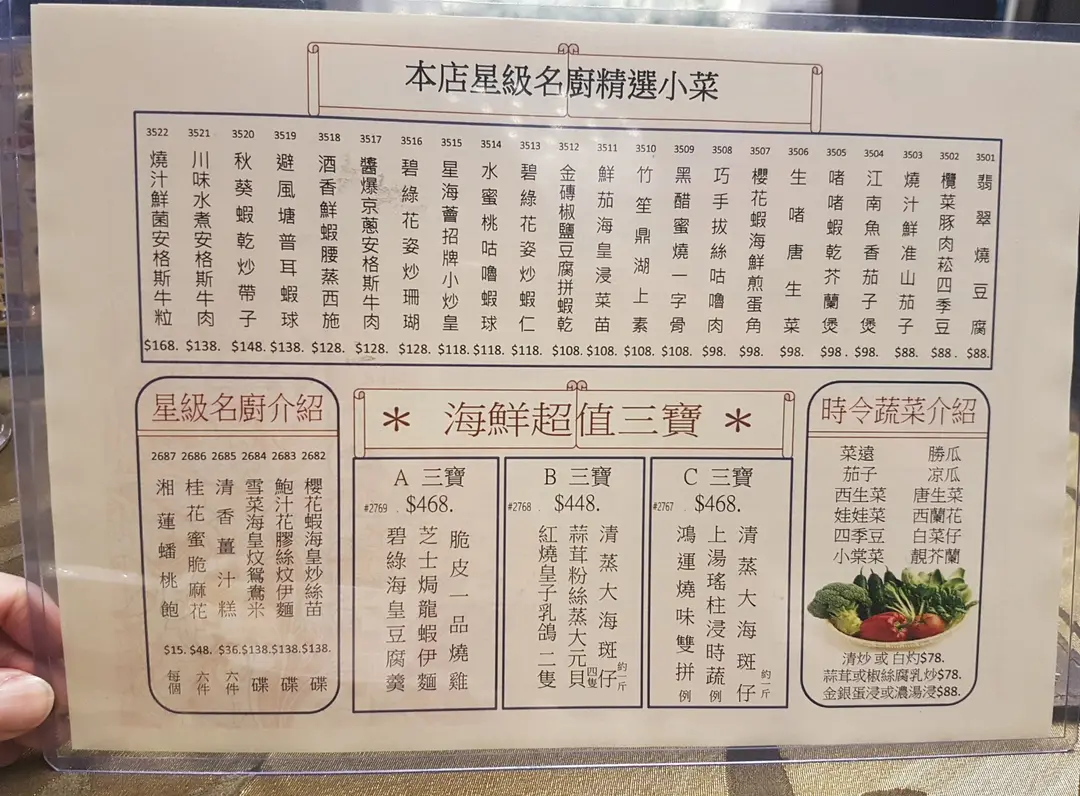 本店星級名廚精選小菜
3501 翡翠燒豆腐 $88.
3502 欖菜豚肉菘四季豆 $88.
3503 燒汁鮮准山茄子 $88.
3504 江南魚香茄子煲 $98.
3505 啫啫蝦乾芥蘭煲 $98.
3506 生啫唐生菜 $98.
3507 櫻花蝦海鮮煎蛋角 $98.
3508 巧手拔絲咕嚕肉 $98.
3509 黑醋蜜燒一字骨 $108.
3510 竹笙鼎湖上素 $108.
3511 鮮茄海皇浸菜苗 $108.
3512 金磚椒鹽豆腐拼蝦乾 $108.
3513 碧綠花姿炒蝦仁 $118.
3514 水蜜桃咕嚕蝦球 $118.
3515 星海薈招牌小炒皇 $118.
3516 碧綠花姿炒珊瑚 $128.
3517 醬爆京蔥安格斯牛肉 $128.
3518 酒香鮮蝦腰蒸西施 $128.
3519 避風塘普耳蝦球 $138.
3520 秋葵蝦乾炒帶子 $148.
3521 川味水煮安格斯牛肉 $138.
3522 燒汁鮮菌安格斯牛粒 $168.
星級名廚介紹
2682 櫻花蝦海皇炒絲苗 $138. 碟
2683 鮑汁花膠絲炆伊麵 $138. 碟
2684 雪菜海皇炆鴛鴦米 $138. 碟
2685 清香薑汁糕 $36. 六件
2686 桂花蜜脆麻花 $48. 六件
2687 湘蓮蟠桃飽 $15. 每個
* 海鮮超值三寶 *
A 三寶
#2769 $468.
脆皮一品燒雞
芝士焗龍蝦伊麵
碧綠海皇豆腐羹
B 三寶
#2768 $448.
清蒸大海斑仔 約一斤
蒜茸粉絲蒸大元貝 四隻
紅燒皇子乳鴿二隻
C 三寶
#2767 $468.
清蒸大海斑仔 約一斤
上湯瑤柱浸時蔬 例
鴻運燒味雙拼 例
時令蔬菜介紹
菜遠 勝瓜
茄子 凉瓜
西生菜 唐生菜
娃娃菜 西蘭花
四季豆 白菜仔
小棠菜 靚芥蘭
清炒 或 白灼$78.
蒜茸或椒絲腐乳炒$78.
金銀蛋浸或濃湯浸$88.